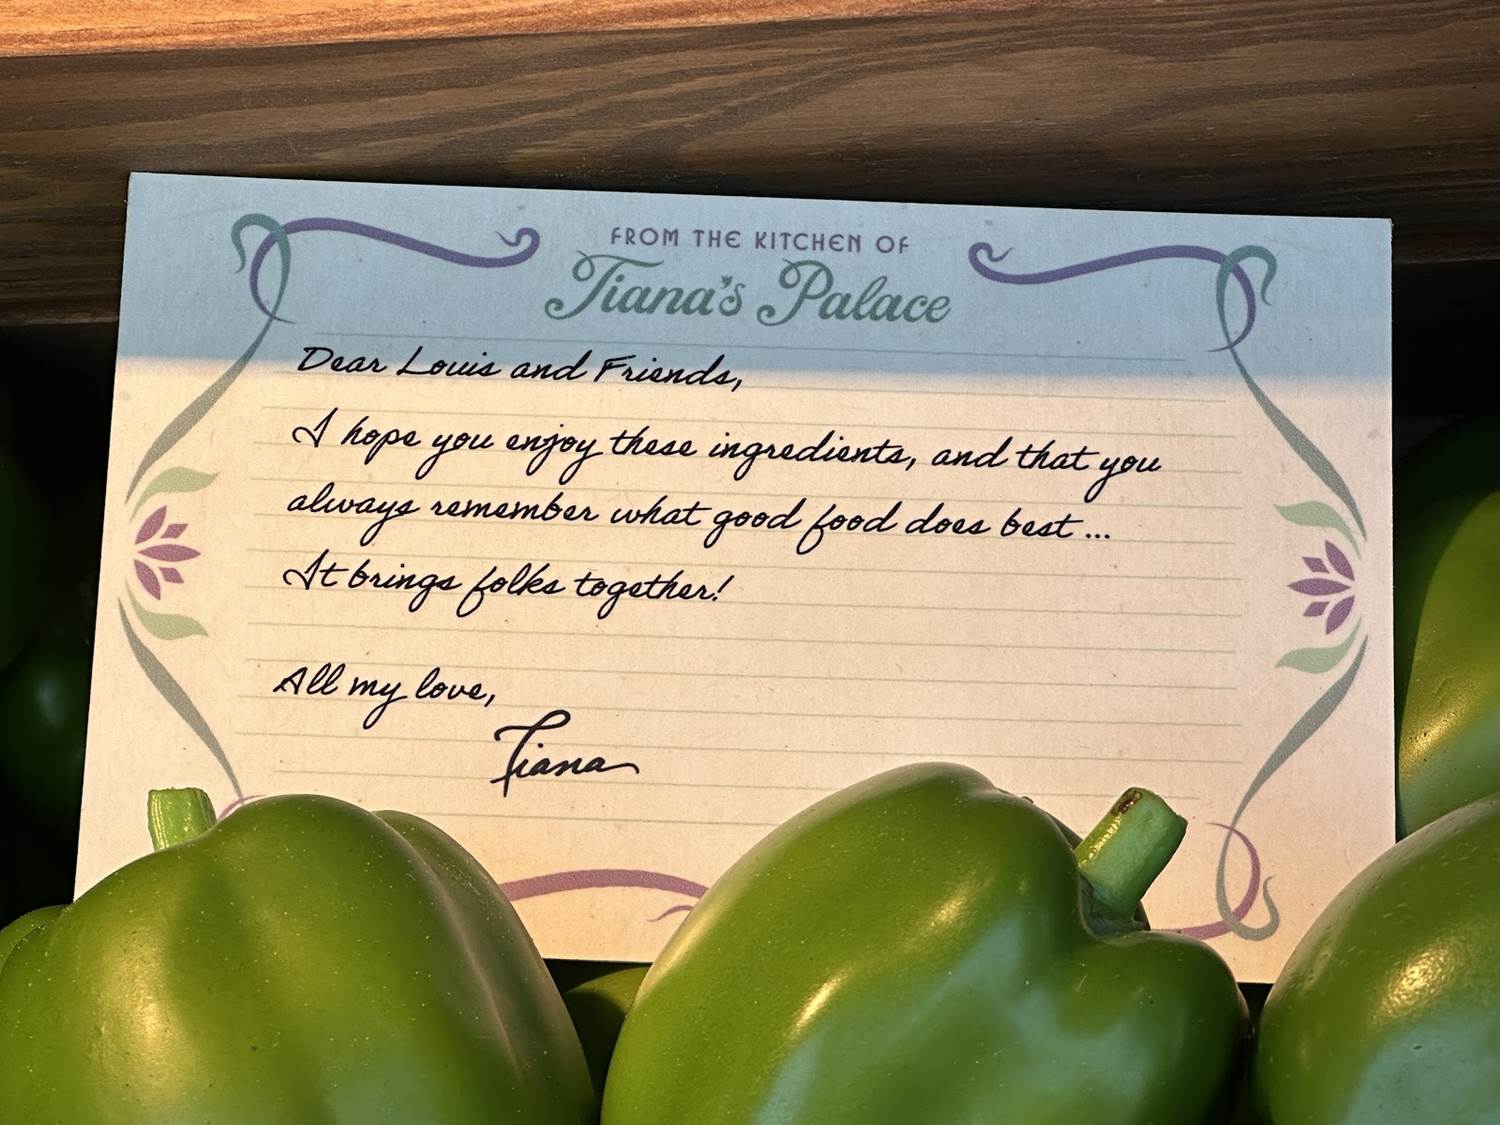 FROM THE KITCHEN OF
Tiana's Palace
Dear Louis and Friends,
I hope you enjoy these ingredients, and that you
always remember what good food does best...
It brings folks together!
All my love,
Tiana